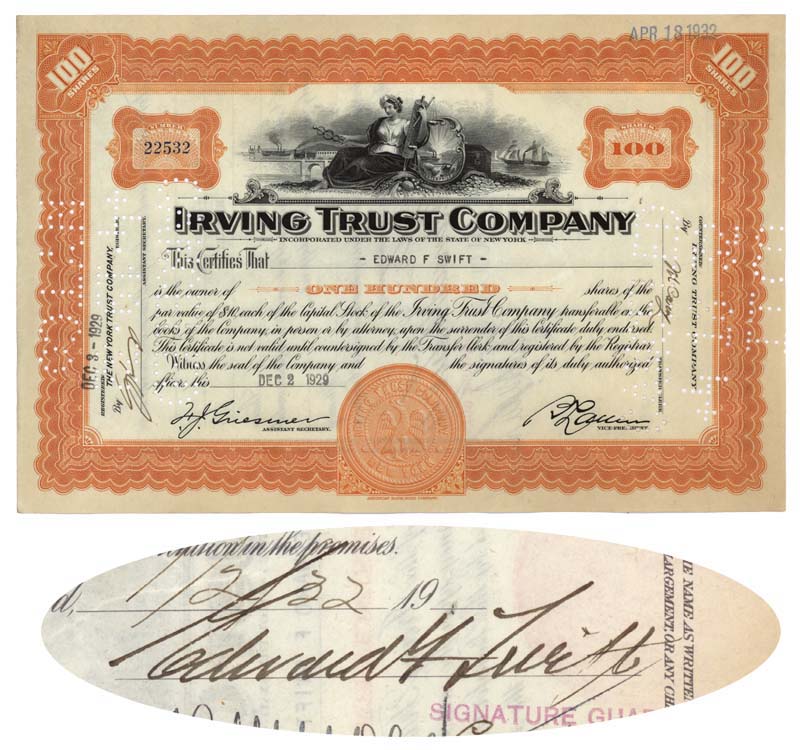 APR 18 1932
100 SHARES
100 SHARES
NUMBER
22532
SHARES
100
IRVING TRUST COMPANY
INCORPORATED UNDER THE LAWS OF THE STATE OF NEW YORK
This Certifies That - EDWARD F SWIFT -
is the owner of ONE HUNDRED shares of the
par value of $10. each of the Capital Stock of the Irving Trust Company transferable on the
books of the Company, in person or by attorney, upon the surrender of this certificate duly endorsed.
This certificate is not valid until countersigned by the Transfer Clerk and registered by the Registrar.
Witness the seal of the Company and the signatures of its duly authorized
officers this DEC 2 1929
ASSISTANT SECRETARY.
VICE-PRESIDENT
AMERICAN BANK NOTE COMPANY
DEC 3 - 1929
REGISTERED
THE NEW YORK TRUST COMPANY,
By
ASSISTANT SECRETARY.
COUNTERSIGNED
IRVING TRUST COMPANY
By
TRANSFER CLERK
in the premises.
d, 1/2/32 19
Edward F Swift
SIGNATURE GUAR
E NAME AS WRITTEN
LARGEMENT OR ANY CH